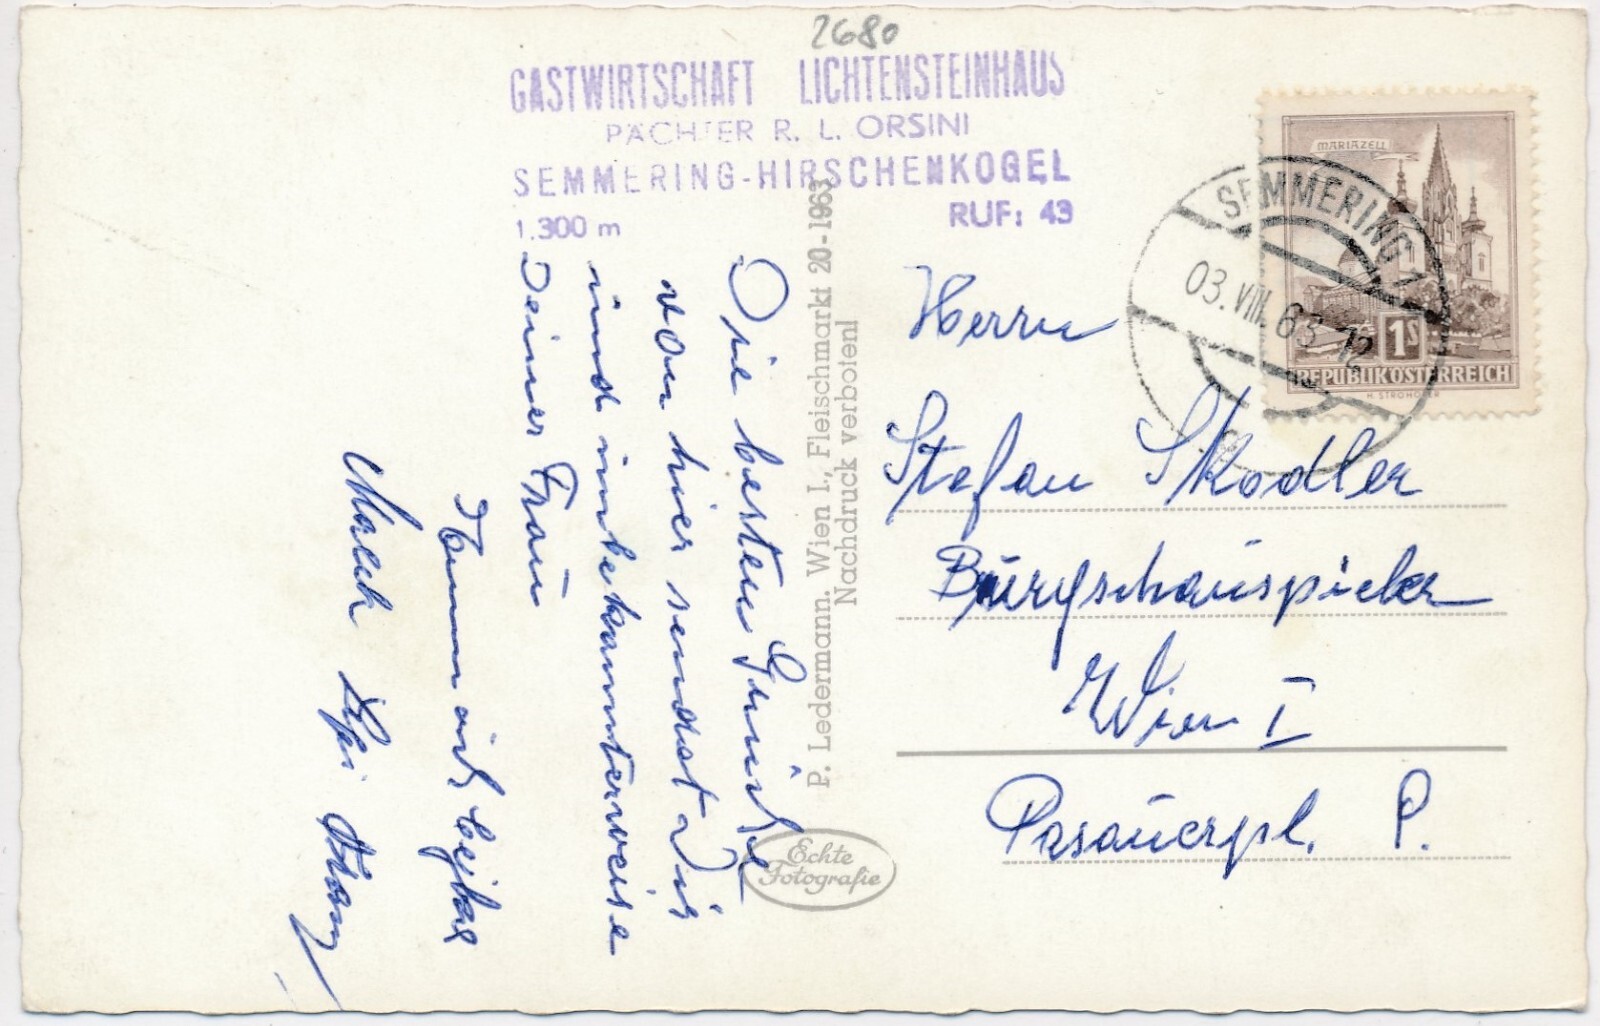 2680
GASTWIRTSCHAFT LICHTENSTEINHAUS
PÄCHTER R. L. ORSINI
SEMMERING-HIRSCHENKOGEL
1.300 m RUF: 43
MARIAZELL
1S
REPUBLIK ÖSTERREICH
H. STROHOFER
SEMMERING 1
03. VIII. 63-12
Die besten Grüße
von hier sendet Dir
und unbekannterweise
Deiner Frau
P. Ledermann. Wien I., Fleischmarkt 20-1963
Nachdruck verboten!
Echte
Fotografie
Herrn
Stefan Skodler
Burgschauspieler
Wien I
Pasauerpl. P.